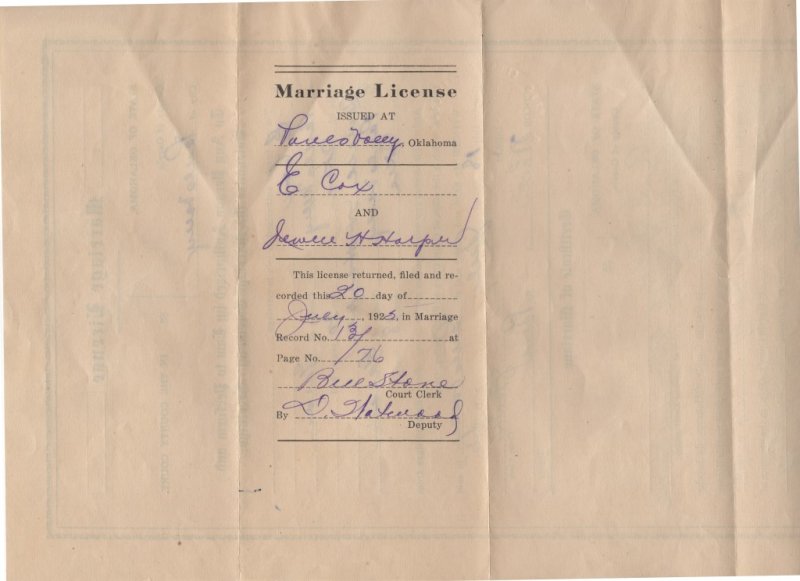 Marriage License
ISSUED AT
Pauls Valley, Oklahoma
E Cox
AND
H Harper
This license returned, filed and re-
corded this 20 day of
July, 1925, in Marriage
Record No. at
Page No. 176
Bill Stone
Court Clerk
By D.
Deputy